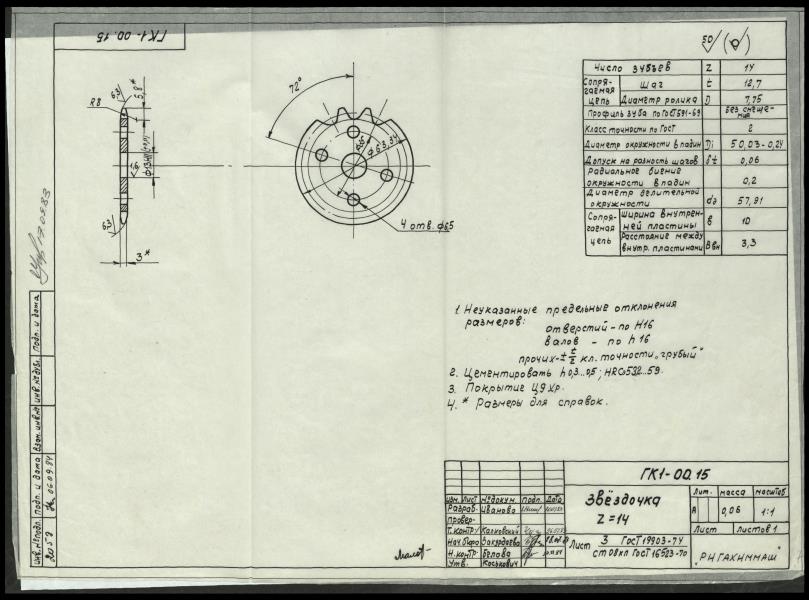 ГК1-00.15
50
Число зубьев Z 14
Сопрягаемая цепь Шаг t 12,7
Диаметр ролика D 7,75
Профиль зуба по ГОСТ 591-69 без смещения
Класс точности по ГОСТ 2
Диаметр окружности впадин Di 50,03-0,24
Допуск на разность шагов δt 0,06
Радиальное биение окружности впадин 0,2
Диаметр делительной окружности dд 57,91
Сопрягаемая цепь Ширина внутренней пластины в 10
Расстояние между внутр. пластинами Ввн 3,3
6,3
5,8*
R8
1,6
6,3
3*
72°
4 отв. ф6,5
1. Неуказанные предельные отклонения
размеров:
отверстий - по H16
валов - по h16
прочих - ± t/2 кл. точности „грубый"
2. Цементировать h 0,3...0,5; HRCэ 53,2...59.
3. Покрытие Ц9хр.
4. * Размеры для справок.
ГК1-00.15
Звёздочка
Z=14
Лит. Масса Масштаб
А 0,06 1:1
Лист Листов 1
Изм. Лист № докум. Подп. Дата
Разраб. Иванова
Провер.
Т. контр.
Нач. бюро
Н. контр. Белова
Утв. Коськович
Лист 3 ГОСТ 19903-74
ст 08кп ГОСТ 16523-70
"РИГАХИММАШ"
Подп. и дата
Инв. № дубл.
Взам. инв. №
Подп. и дата
06.09.84
Инв. № подл.